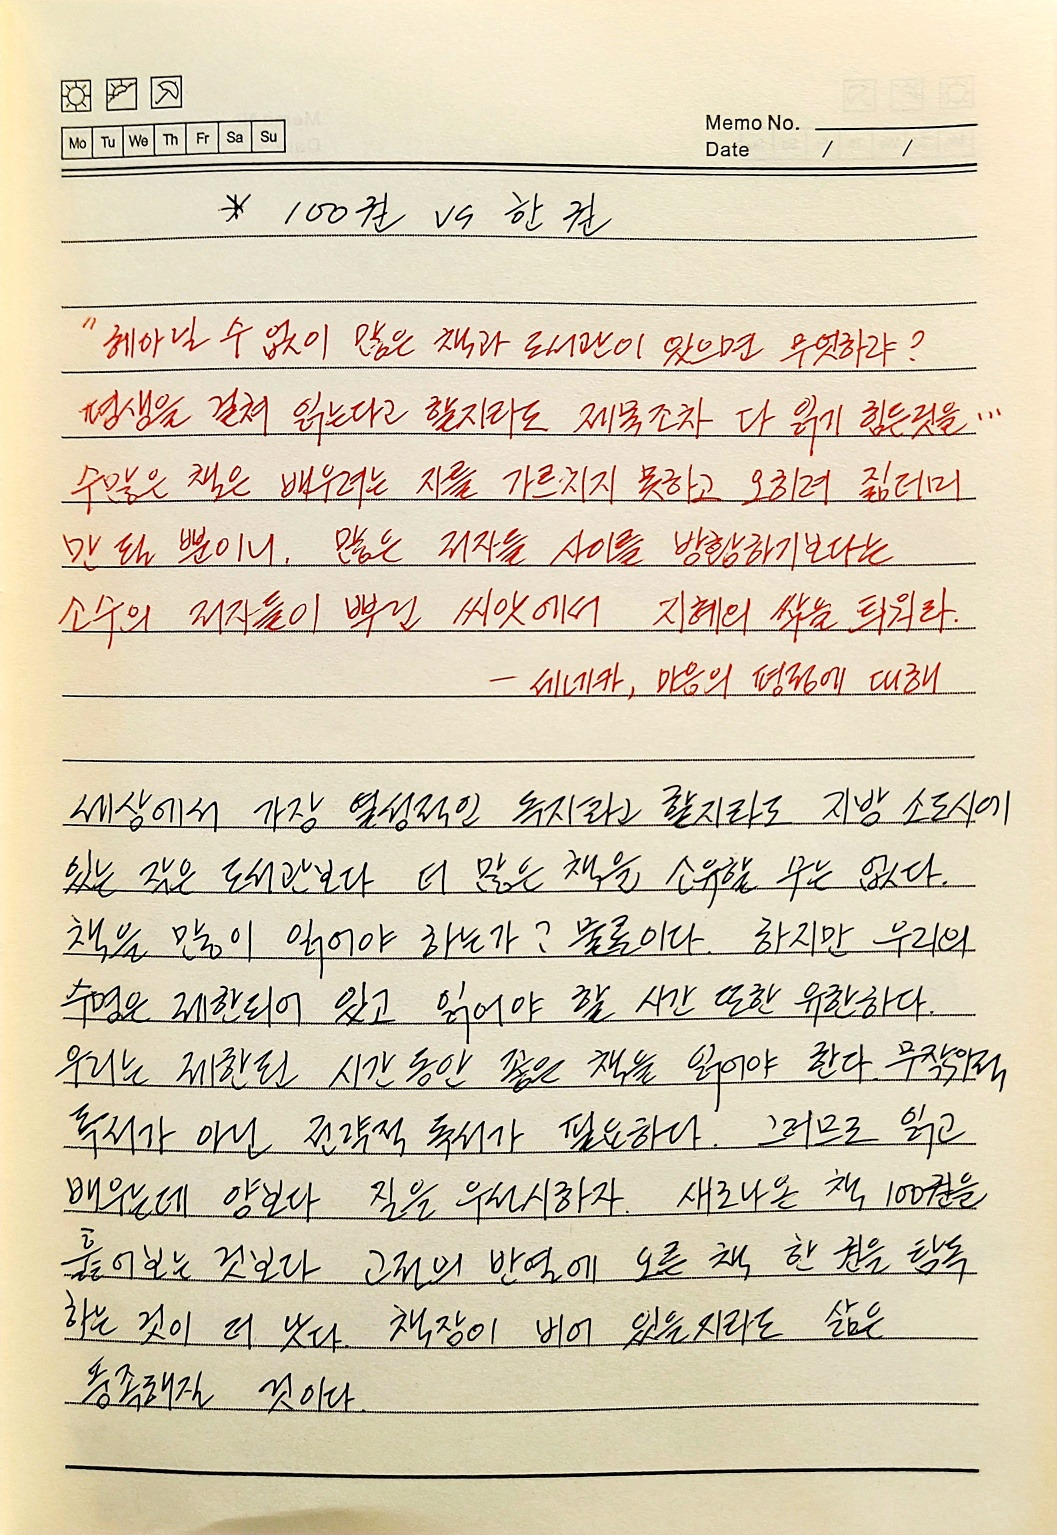 Mo Tu We Th Fr Sa Su
Memo No.
Date / /
* 100권 vs 한 권
"헤아릴 수 없이 많은 책과 도서관이 있으면 무엇하랴?
평생을 걸쳐 읽는다고 할지라도 제목조차 다 읽기 힘든것을…
수많은 책은 배우려는 자를 가르치지 못하고 오히려 짐더미
만 될 뿐이니, 많은 저자들 사이를 방황하기보다는
소수의 저자들이 뿌린 씨앗에서 지혜의 싹을 틔워라.
- 세네카, 마음의 평정에 대해
세상에서 가장 열성적인 독자라고 할지라도 지방 소도시에
있는 작은 도서관보다 더 많은 책을 소유할 수는 없다.
책을 많이 읽어야 하는가? 물론이다. 하지만 우리의
수명은 제한되어 있고 읽어야 할 시간 또한 유한하다.
우리는 제한된 시간 동안 좋은 책을 읽어야 한다. 무작위적
독서가 아닌 전략적 독서가 필요하다. 그러므로 읽고
배우는데 양보다 질을 우선시하자. 새로나온 책 100권을
훑어보는 것보다 고전의 반열에 오른 책 한 권을 탐독
하는 것이 더 낫다. 책장이 비어 있을지라도 삶은
풍족해질 것이다.